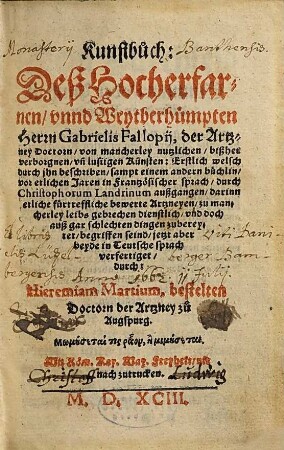 Monasterij Banthensis.
Kunstbůch:
Deß Hocherfar-
nen/ vnnd Weytberhümpten
Herrn Gabrielis Fallopij, der Artz-
ney Doctorn/ von mancherley nutzlichen/ bißher
verborgnen/ vñ lustigen Künsten: Erstlich welsch
durch jhn beschriben/ sampt einem andern büchlin/
vor etlichen Jaren in Frantzösischer sprach/ durch
Christophorum Landrinum außgangen/ darinn
etliche fürtreffliche bewerte Artzneyen/ zu man-
cherley leibs gebrechen dienstlich/ vnd doch
auß gar schlechten dingen zuberey-
tet/ begriffen seind/ jetzt aber
beyde in Teutsche sprach
verfertiget/
durch:
Hieremiam Martium, bestelten
Doctorn der Artzney zů
Augspurg.
Μωμήσεταί τις ῥᾷον, ἢ μιμήσεται.
Mit Röm. Kay. May. Freyheit, nit
nach zutrucken.
Christoff Ludwig
M. D. XCIII.